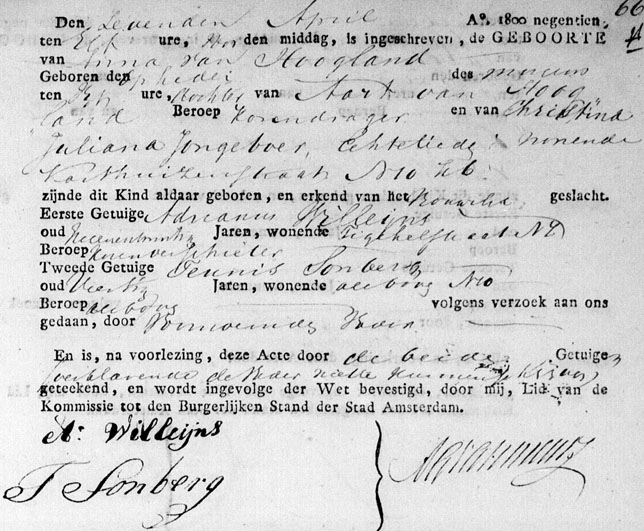 66
Den Zevenden April A°. 1800 negentien,
ten Elf ure, voor den middag, is ingeschreven, de GEBOORTE
van Anna van Hoogland
Geboren den op heden des morgens
ten ure, Dochter van Aart van Hoog
land Beroep Korendrager en van Christina
Juliana Jongeboer, Echtelieden wonende
Karthuizerstraat N10
zijnde dit Kind aldaar geboren, en erkend van het Vrouwelik geslacht.
Eerste Getuige Adrianus Willeijns
oud Jaren, wonende
Beroep Korenverschieter
Tweede Getuige Teunis Sonberg
oud Veertig Jaren, wonende als boven N10
Beroep als boven volgens verzoek aan ons
gedaan, door Voornoemde Vader
En is, na voorlezing, deze Acte door de beide Getuige
verklarende de Vader niet te kunnen schrijven
geteekend, en wordt ingevolge der Wet bevestigd, door mij, Lid van de
Kommissie tot den Burgerlijken Stand der Stad Amsterdam.
A: Willeijns
T Sonberg